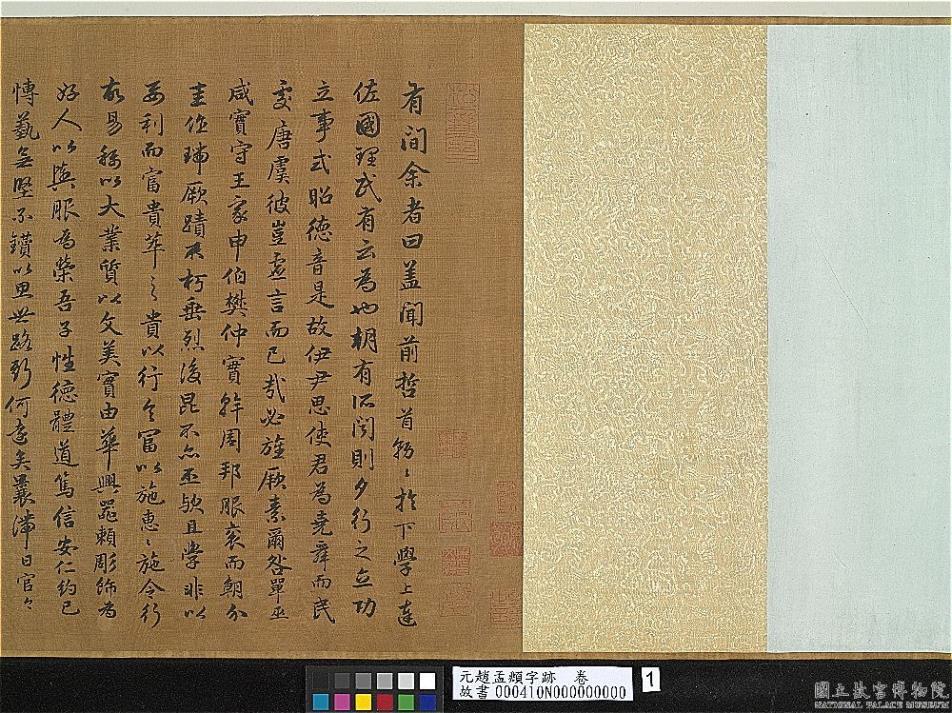 有間余者曰蓋聞前哲首務〻於下學上達
佐國理民有云為也朝有所聞則夕行之立功
立事式昭德音是故伊尹思使君為堯舜而民
處唐虞彼豈虛言而已哉必旌厥素爾咎單巫
咸寔守王家申伯樊仲實幹周邦服衮而朝介
圭作瑞厥蹟不朽垂烈後昆不亦丕歟且學非以
要利而富貴萃之貴以行令富以施惠〻施令行
故易稱以大業質以文美實由華興器賴彫飾為
好人以輿服為榮吾子性德體道篤信安仁約己
博藝無堅不鑽以思世路斯何遠矣曩滯日官〻
元趙孟頫字跡 卷
故書 000410N000000000
1
國立故宮博物院
NATIONAL PALACE MUSEUM